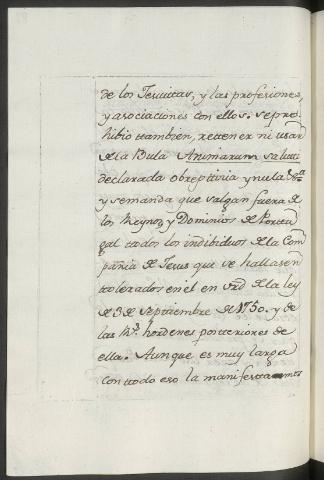 de los Jesuitas, y las profesiones,
y asociaciones con ellos. se pro
hibio tambien, retener ni usar
de la Bula Animarum saluti
declarada obrepticia y nula &.ª
y se manda que salgan fuera de
los Reynos y Dominios de Portu
gal todos los indibiduos de la Com
pañia de Jesus que se hallasen
tolerados en él en vrd de la ley
de 3 de septiembre de 1750. y de
las Rs. hordenes posteriores de
ella. Aunque es muy larga
con todo eso la manifestamos